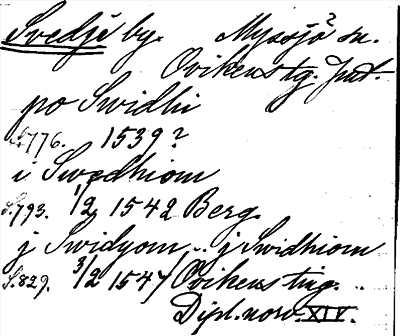 Svedje by. Myssjö sn.
Ovikens tg. Jmt.
på Swidhi
S. 776. 1539?
i Swedhiom
S. 793. 1/2 1542 Berg.
j Swidyom .. j Swidhiom
S. 829. 3/2 1547 Ovikens ting. ..
Dipl. norv. XIV.